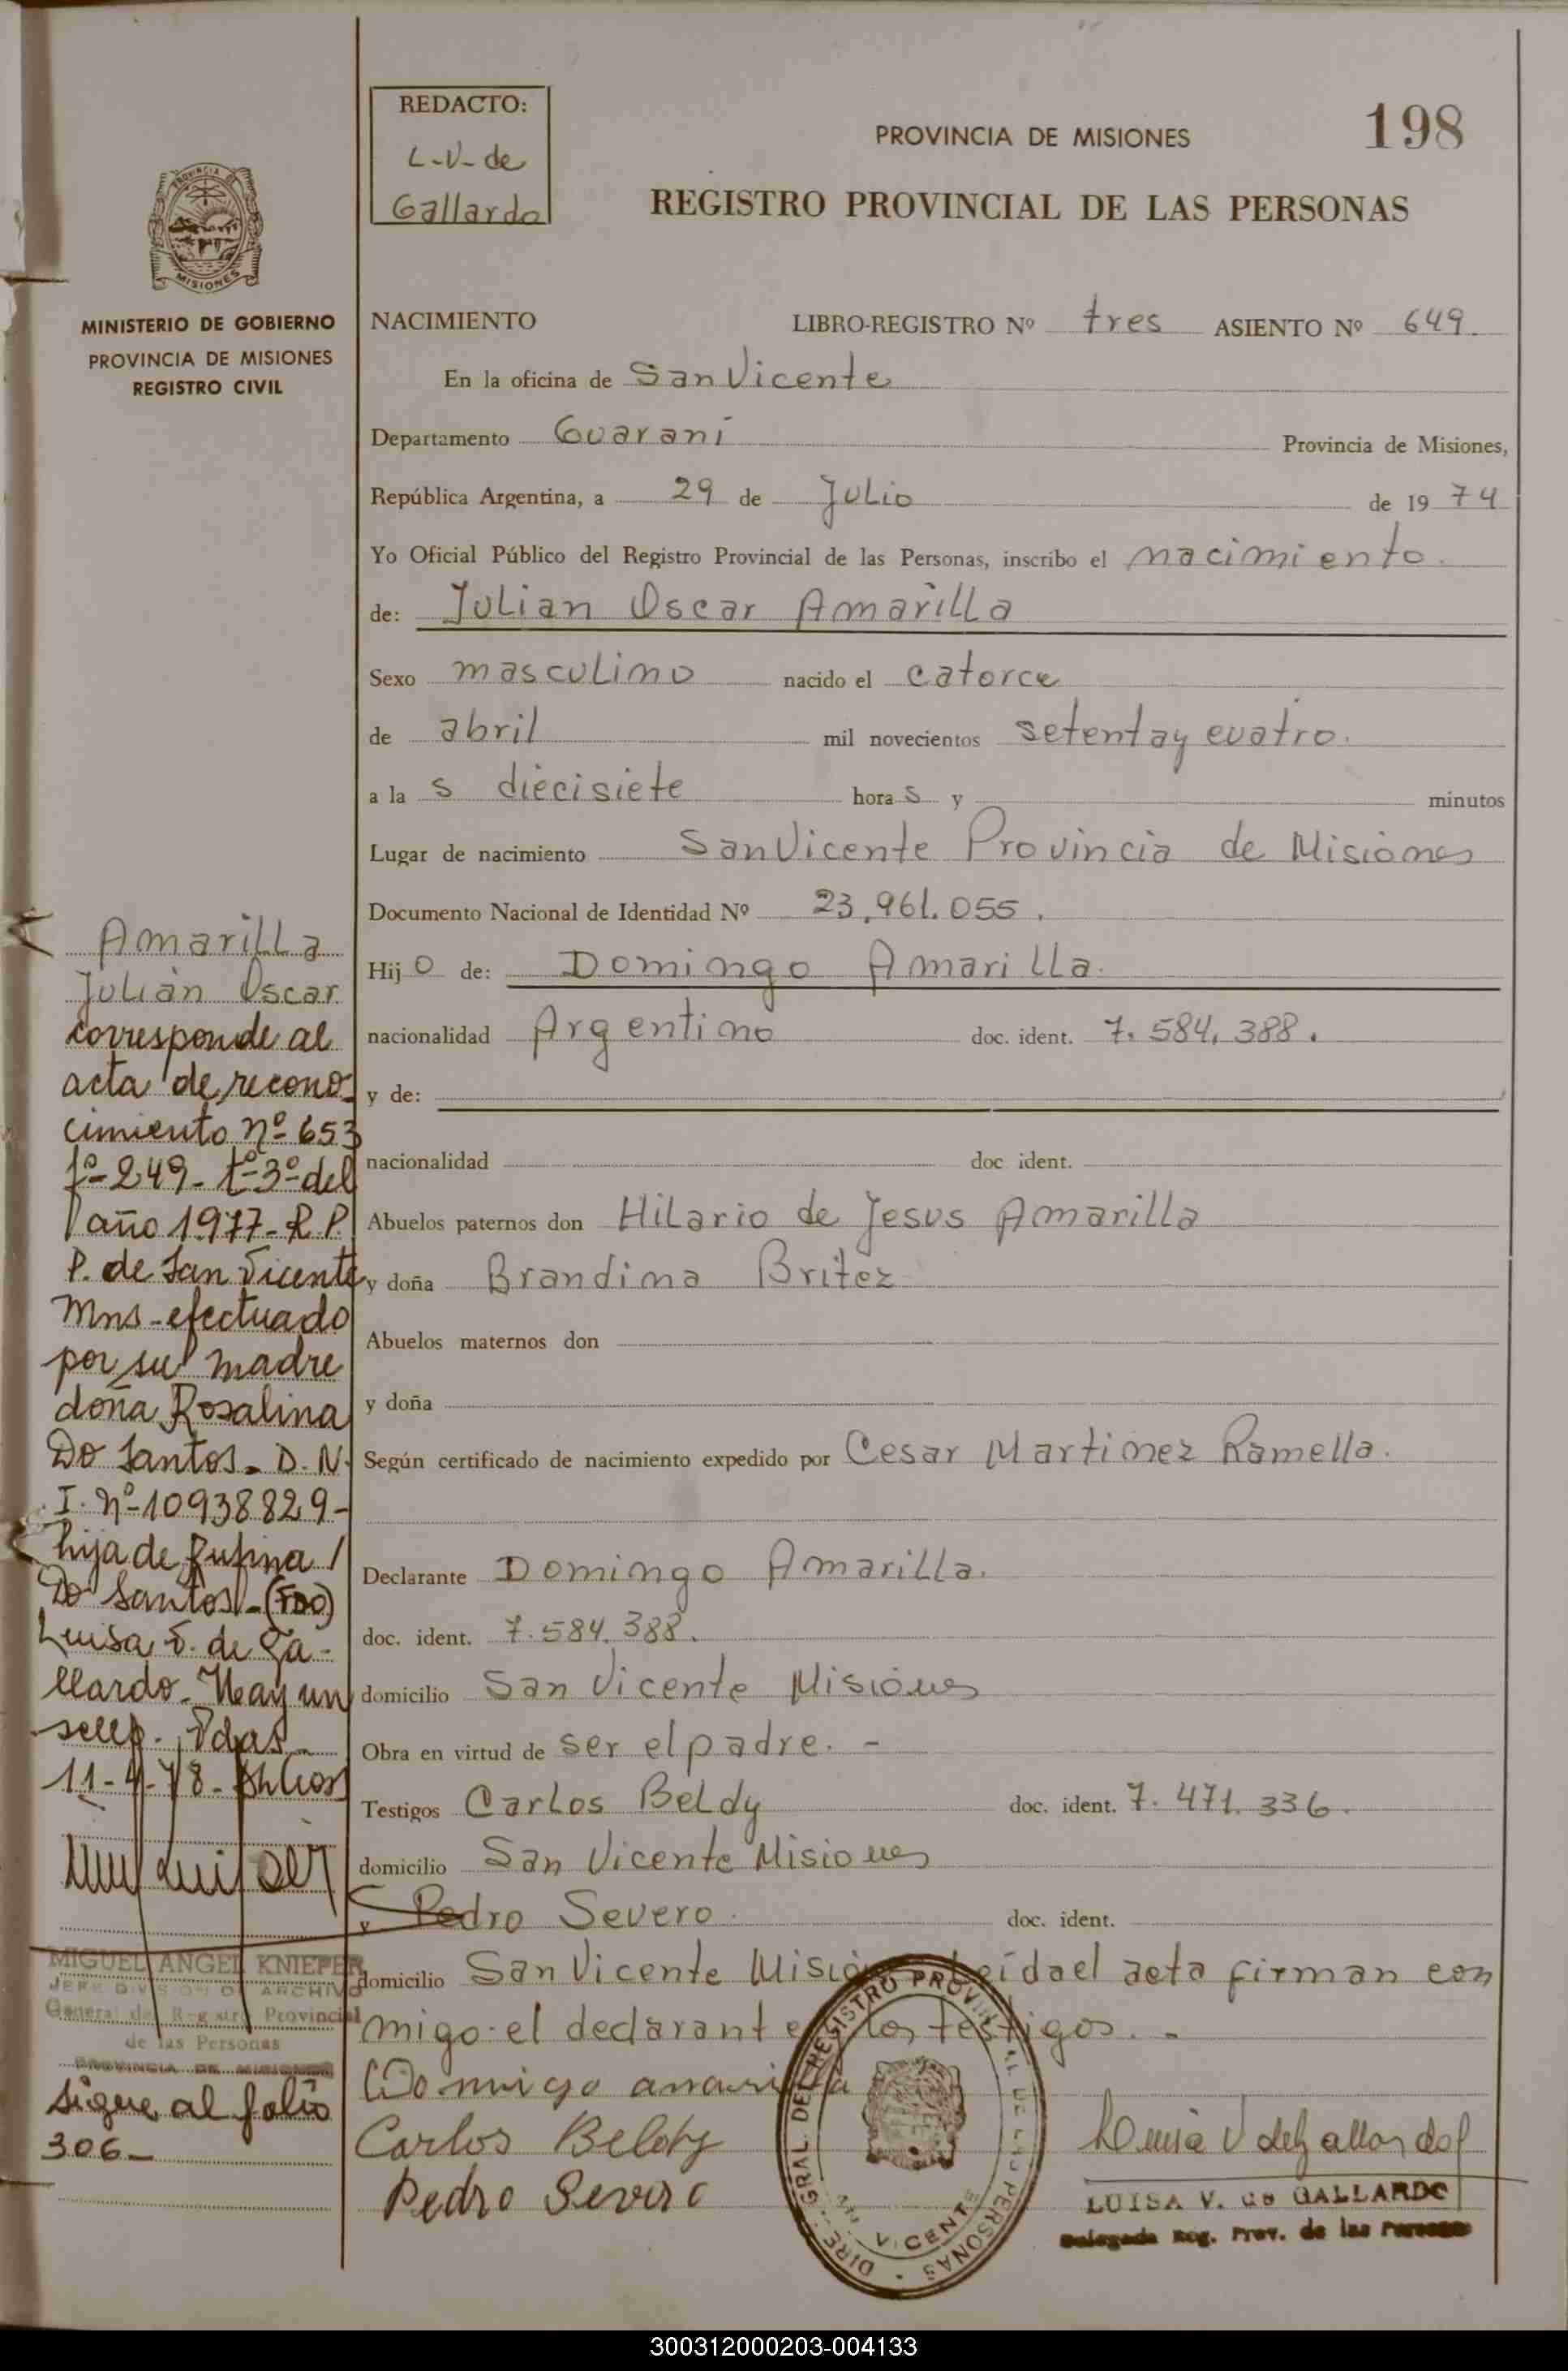 REDACTO:
L-V-de
Gallardo
PROVINCIA DE MISIONES
198
REGISTRO PROVINCIAL DE LAS PERSONAS
PROVINCIA DE
MISIONES
MINISTERIO DE GOBIERNO
PROVINCIA DE MISIONES
REGISTRO CIVIL
NACIMIENTO LIBRO-REGISTRO Nº tres ASIENTO Nº 649
En la oficina de San Vicente
Departamento Guaraní Provincia de Misiones,
República Argentina, a 29 de Julio de 19 74
Yo Oficial Público del Registro Provincial de las Personas, inscribo el nacimiento.
de: Julian Oscar Amarilla
Sexo masculino nacido el catorce
de abril mil novecientos setenta y cuatro.
a la s diecisiete hora s y minutos
Lugar de nacimiento San Vicente Provincia de Misiones
Documento Nacional de Identidad Nº 23.961.055.
Hij o de: Domingo Amarilla.
nacionalidad Argentino doc. ident. 7.584.388.
y de:
nacionalidad doc. ident.
Abuelos paternos don Hilario de Jesus Amarilla
y doña Brandina Britez
Abuelos maternos don
y doña
Según certificado de nacimiento expedido por Cesar Martinez Ramella.
Declarante Domingo Amarilla.
doc. ident. 7.584.388.
domicilio San Vicente Misiones
Obra en virtud de ser el padre. -
Testigos Carlos Beldy doc. ident. 7.471.336.
domicilio San Vicente Misiones
y Pedro Severo. doc. ident.
domicilio San Vicente Misiones Leida el acta firman con
migo el declarante y los testigos. -
Domingo amarilla
Carlos Beldy
Pedro Severo
Luisa V de Gallardo
LUISA V. de GALLARDO
Delegada Reg. Prov. de las Personas
DIRE. GRAL. DEL REGISTRO PROVINCIAL DE LAS PERSONAS
VICENTE
Amarilla
Julián Oscar
corresponde al
acta de recono-
cimiento nº 653
fº-249- tº-3º-del
año 1977- R.P.
P. de San Vicente
Mns-efectuado
por su madre
doña Rosalina
Do Santos. D.N.
I. nº-10938829-
hija de Rufina
Do Santos-(FDO)
Luisa V. de Ga-
llardo. Hay un
sello. Pdas-
11-4-78-
MIGUEL ANGEL KNIEPER
JEFE DIVISION DE ARCHIVO
General del Registro Provincial
de las Personas
PROVINCIA DE MISIONES
sigue al folio
306-
300312000203-004133